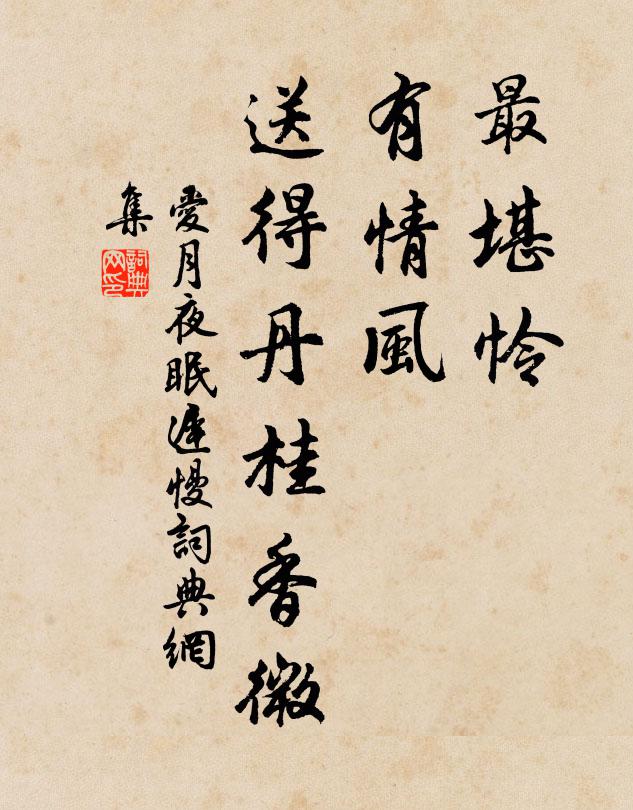 最堪怜
有情風
送得丹桂香微
愛月夜眠遲慢詞典網
集
詞典
网印